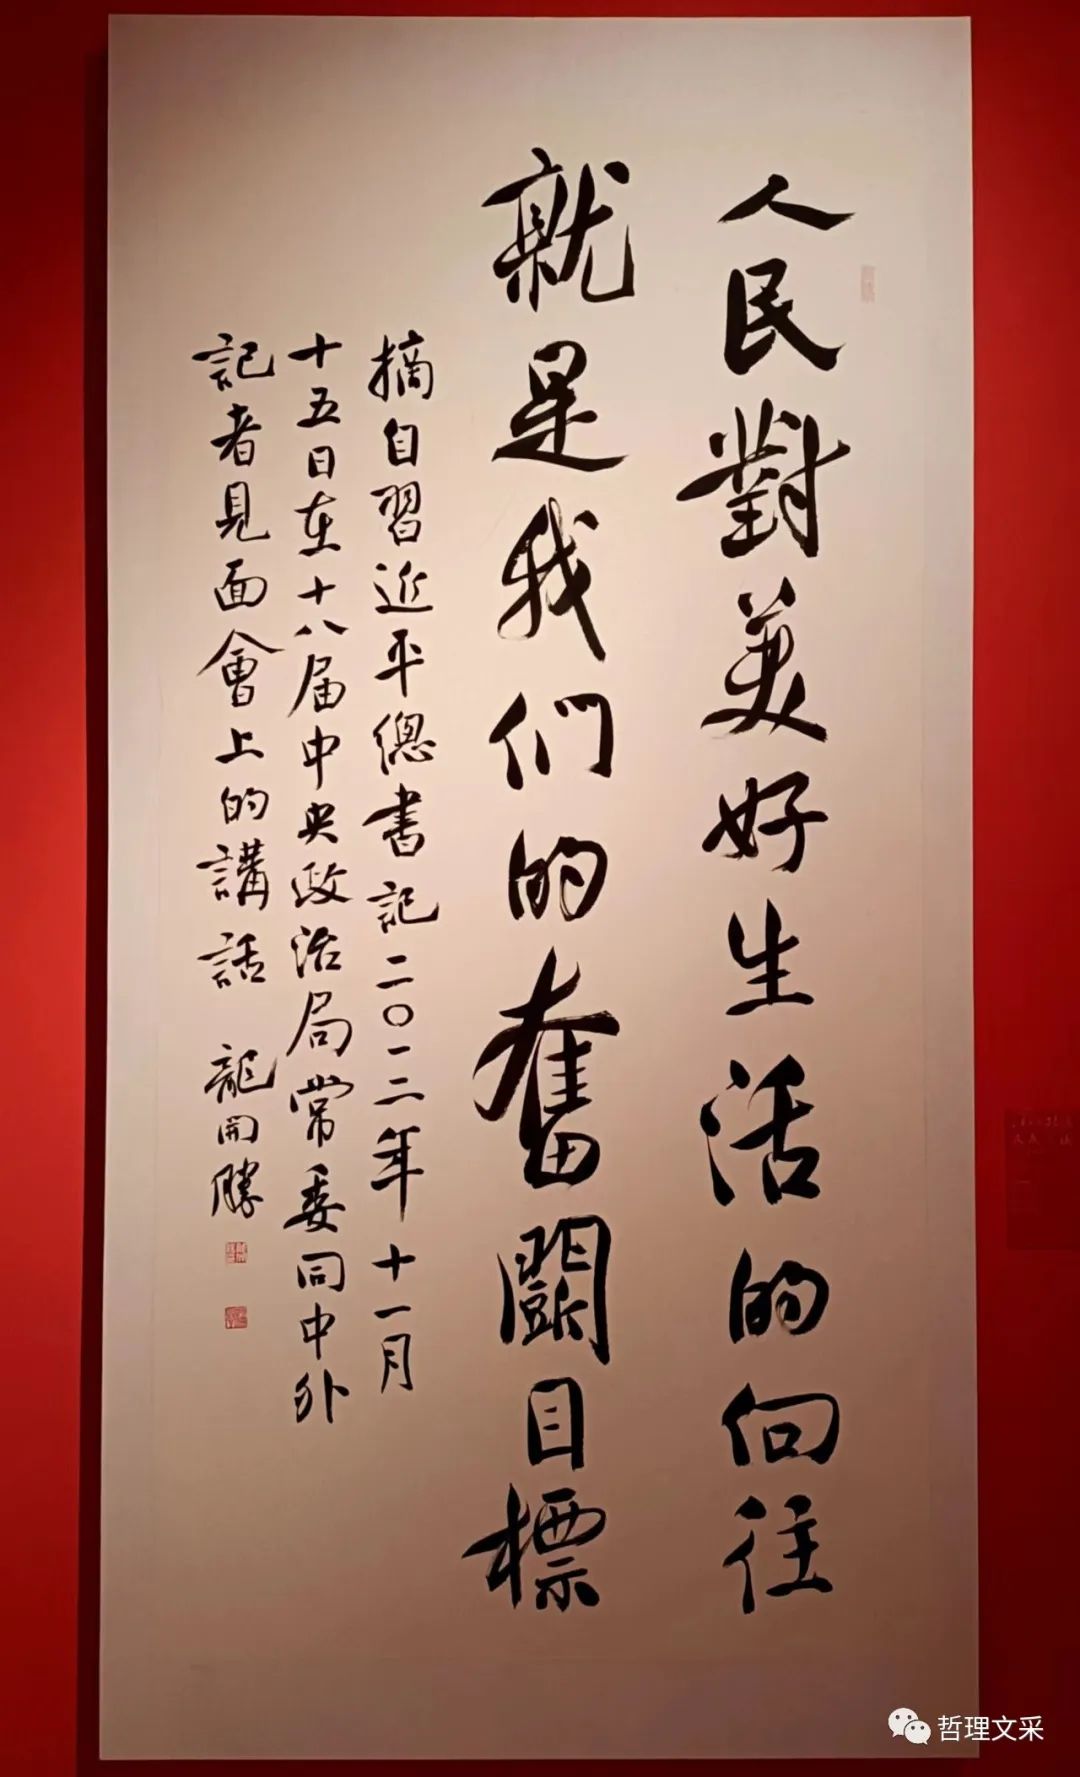 人民對美好生活的向往
就是我们的奮鬭目標
摘自習近平總書記二〇一二年十一月
十五日在十八届中央政治局常委同中外
記者見面會上的講話 龍開勝
哲理文采